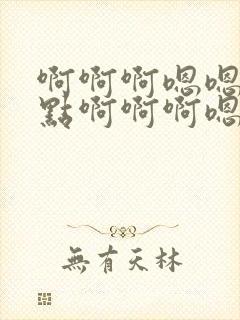 啊啊啊嗯嗯
點啊啊啊嗯
無有天林